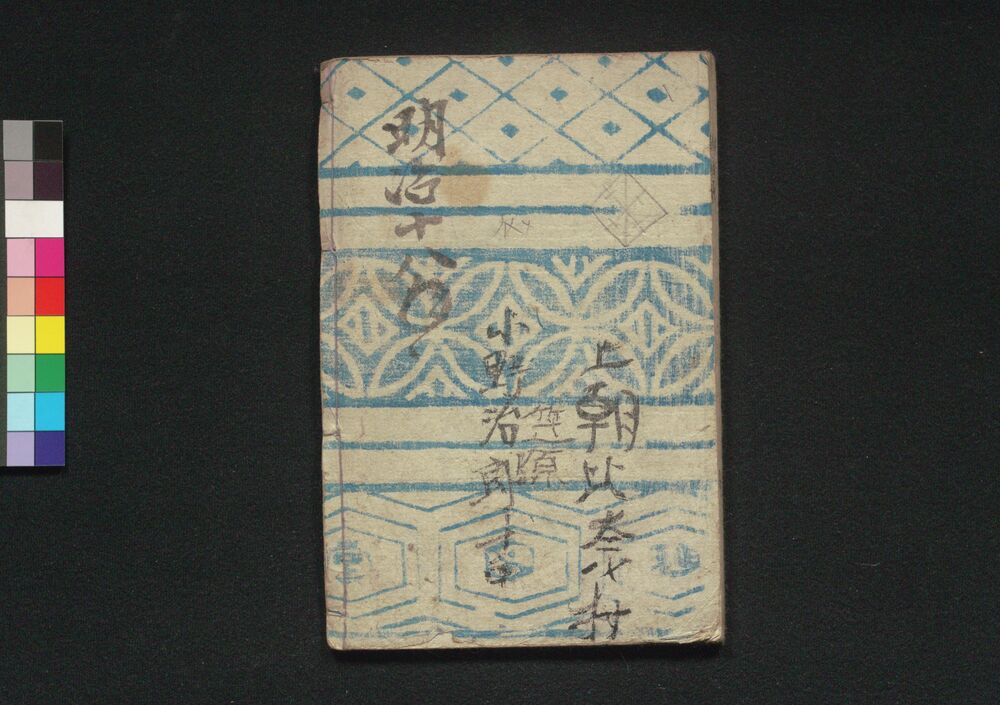 上朝比奈村
笠原
小野治郎
明治十